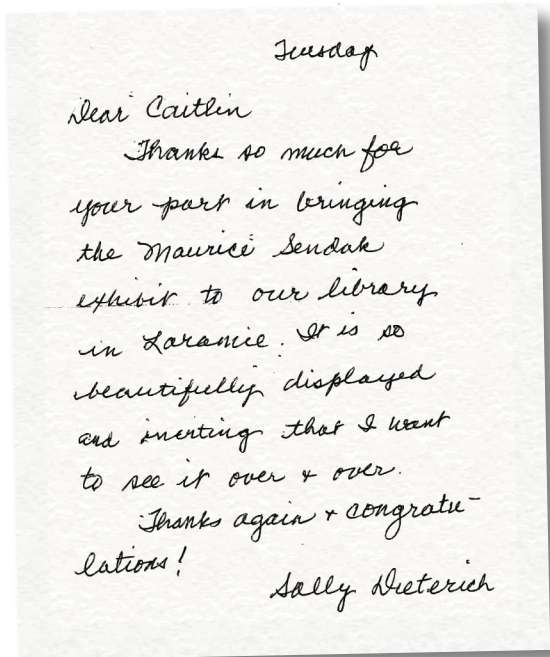 Tuesday
Dear Caitlin
Thanks so much for
your part in bringing
the Maurice Sendak
exhibit to our library
in Laramie. It is so
beautifully displayed
and inviting that I want
to see it over & over.
Thanks again & congratu-
lations!
Sally Dieterich